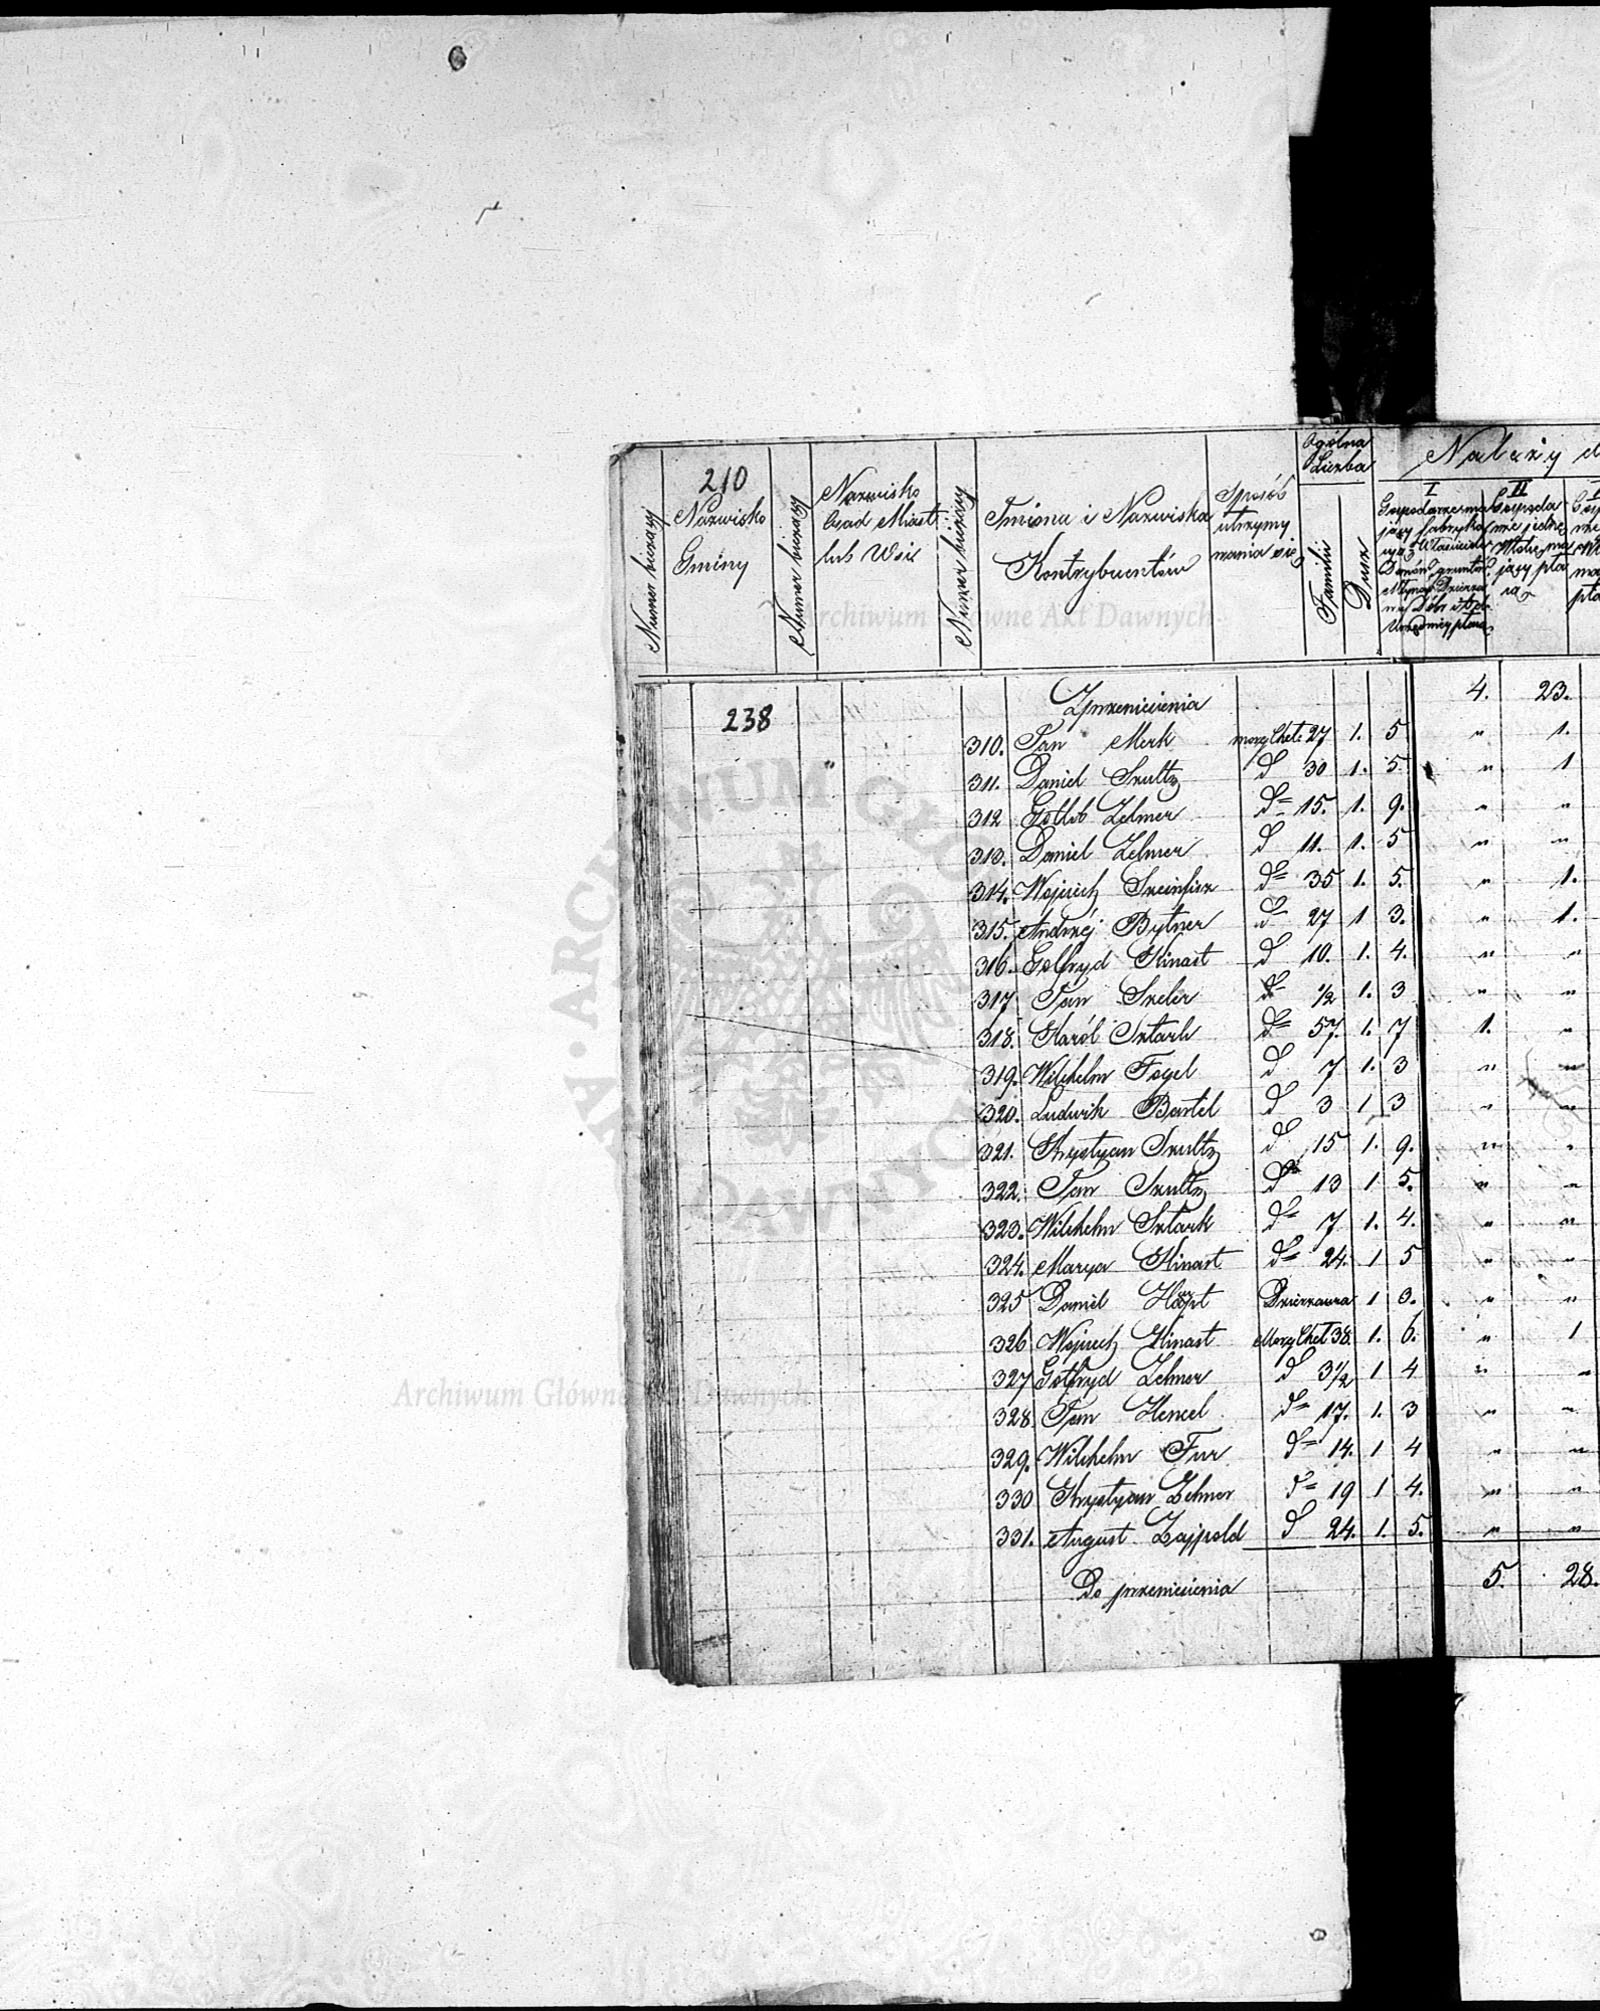 210
Numer bieżący
Nazwisko
Gminy
Numer bieżący
Nazwisko
Osad Miast
lub Wsi
Numer bieżący
Imiona i Nazwiska
Kontrybuentów
Sposób
utrzymy
wania się
Ogólna
Liczba
Familii
Dusz
Należy d
I
II
238
Z przeniesienia 4. 23.
310. Jan Merk morg Chet: 27 1. 5 " 1.
311. Daniel Szultz d 30 1. 5. " 1
312 Gotlib Zelmer d 15. 1. 9. " "
313. Daniel Zelmer d 11. 1. 5 " "
314. Wojciech d 35 1. 5. " 1.
315. Andrzej Bytner d 27 1 3. " 1.
316. Gotfryd Kinast d 10. 1. 4. " "
317 Jan Szeler d 1/2 1. 3 " "
318. Karól Sztark d 57. 1. 7 1. "
319. Wilchelm Fogel d 7 1. 3 " "
320. Ludwik Bartel d 3 1 3 " "
321. Krystyan Szultz d 15 1. 9. " "
322. Jan Szultz d 13 1 5. " "
323. Wilchelm Sztark d 7 1. 4. " "
324. Marya Kinast d 24. 1 5 " "
325 Daniel 1 3. " "
326 Wojciech Kinast Morg Chet 38. 1. 6. " 1
327 Gotfryd Zelmer d 3 1/2 1 4 " "
328 Jan Hencel d 17. 1. 3 " "
329. Wilchelm Fur d 14. 1 4 " "
330 Krystyan Zelmer d 19 1 4. " "
331. August Zajpold d 24. 1. 5. " "
Do przeniesienia 5. 28.
Archiwum Główne Akt Dawnych
Archiwum Główne Akt Dawnych
ARCHIWUM GŁÓWNE AKT DAWNYCH